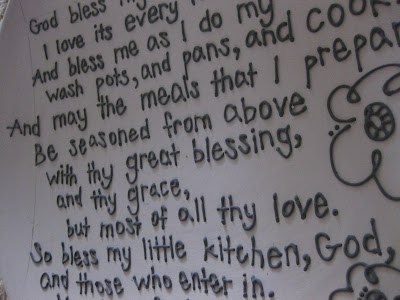 God bless my
I love its every
And bless me as I do my
wash pots, and pans, and cook
And may the meals that I prepar
Be seasoned from above
with thy great blessing,
and thy grace,
but most of all thy love.
So bless my little kitchen, God,
and those who enter in.